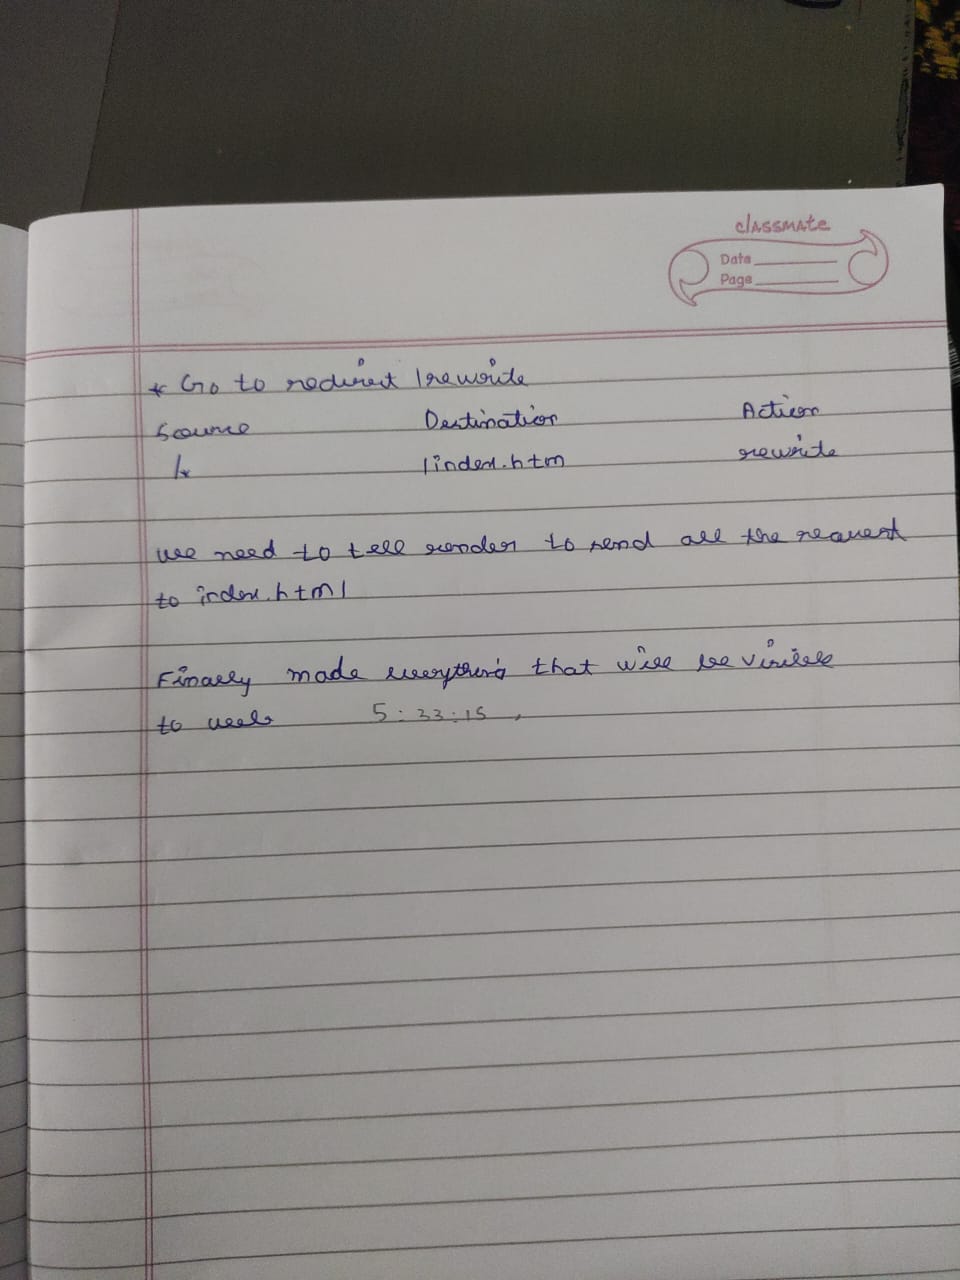 classmate
Date
Page
* Go to redirect /rewrite
Source Destination Action
/* /index.htm rewrite
we need to tell render to send all the request
to index.html
Finally made everything that will be visible
to web 5:33:15